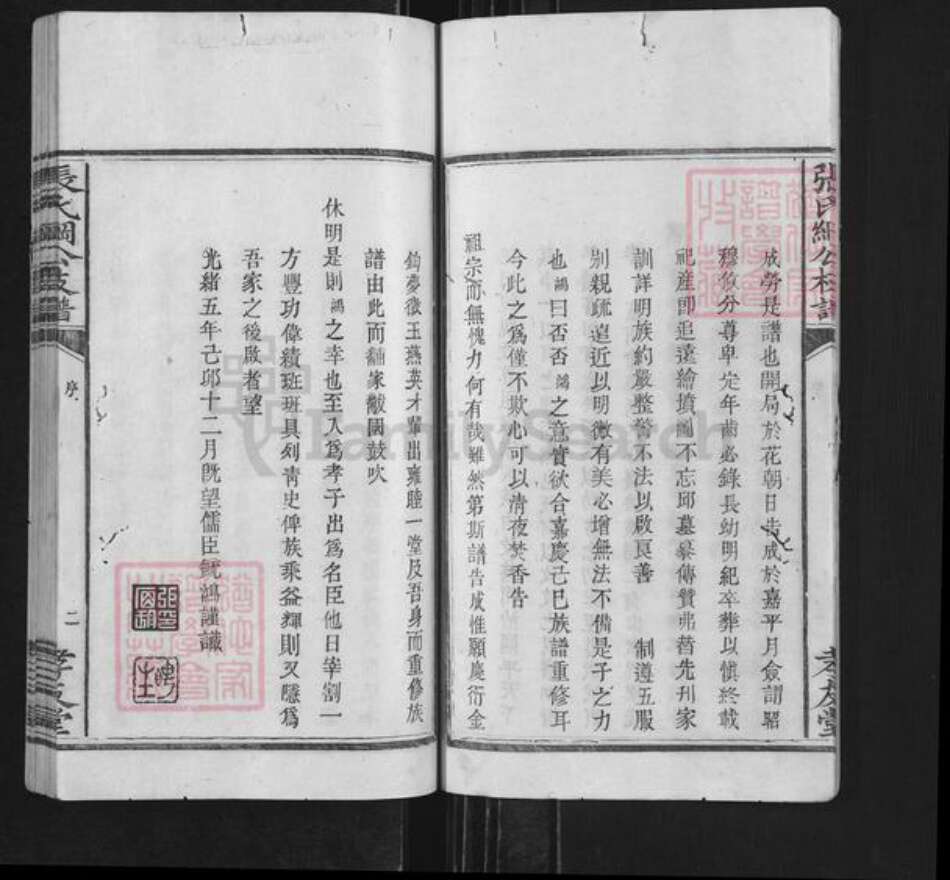 張氏綱公支譜
成勞是譜也開局於花朝日告成於嘉平月僉謂昭
穆攸分尊卑定年齒必錄長幼明紀卒葬以慎終載
祀產即追遠繪墳圖不忘邱墓彙傳贊弗替先刋家
訓詳明族約嚴整警不法以啟良善 制遵五服
別親疏遠近以明微有美必增無法不備是子之力
也鴻曰否否鴻之意實欲合嘉慶己巳族譜重修耳
今此之為僅不欺心可以清夜焚香告
祖宗而無愧力何有哉雖然第斯譜告成惟願慶衍金
孝友堂
張氏綱公支譜
序
二
孝友堂
鈎夢徵玉燕英才輩出雍睦一堂及吾身而重修族
譜由此而黼家黻國鼓吹
休明是則鴻之幸也至入為孝子出為名臣他日宰割一
方豐功偉績班班具列青史俾族乘益輝則又隱為
吾家之後啟者望
光緒五年己卯十二月既望儒臣毓鴻謹識
FamilySearch